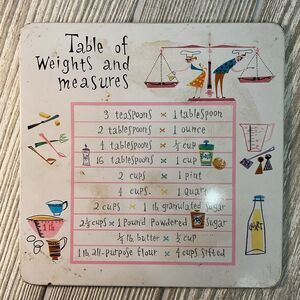 Table of
Weights and
measures
3 teaspoons × 1 tablespoon
2 tablespoons × 1 ounce
4 tablespoons × ¼ cup
16 tablespoons × 1 cup
2 cups × 1 pint
4 cups × 1 quart
2 cups × 1 lb granulated sugar
2½ cups × 1 pound powdered sugar
¼ lb. butter × ½ cup
1 lb all-purpose flour × 4 cups sifted
1 lb